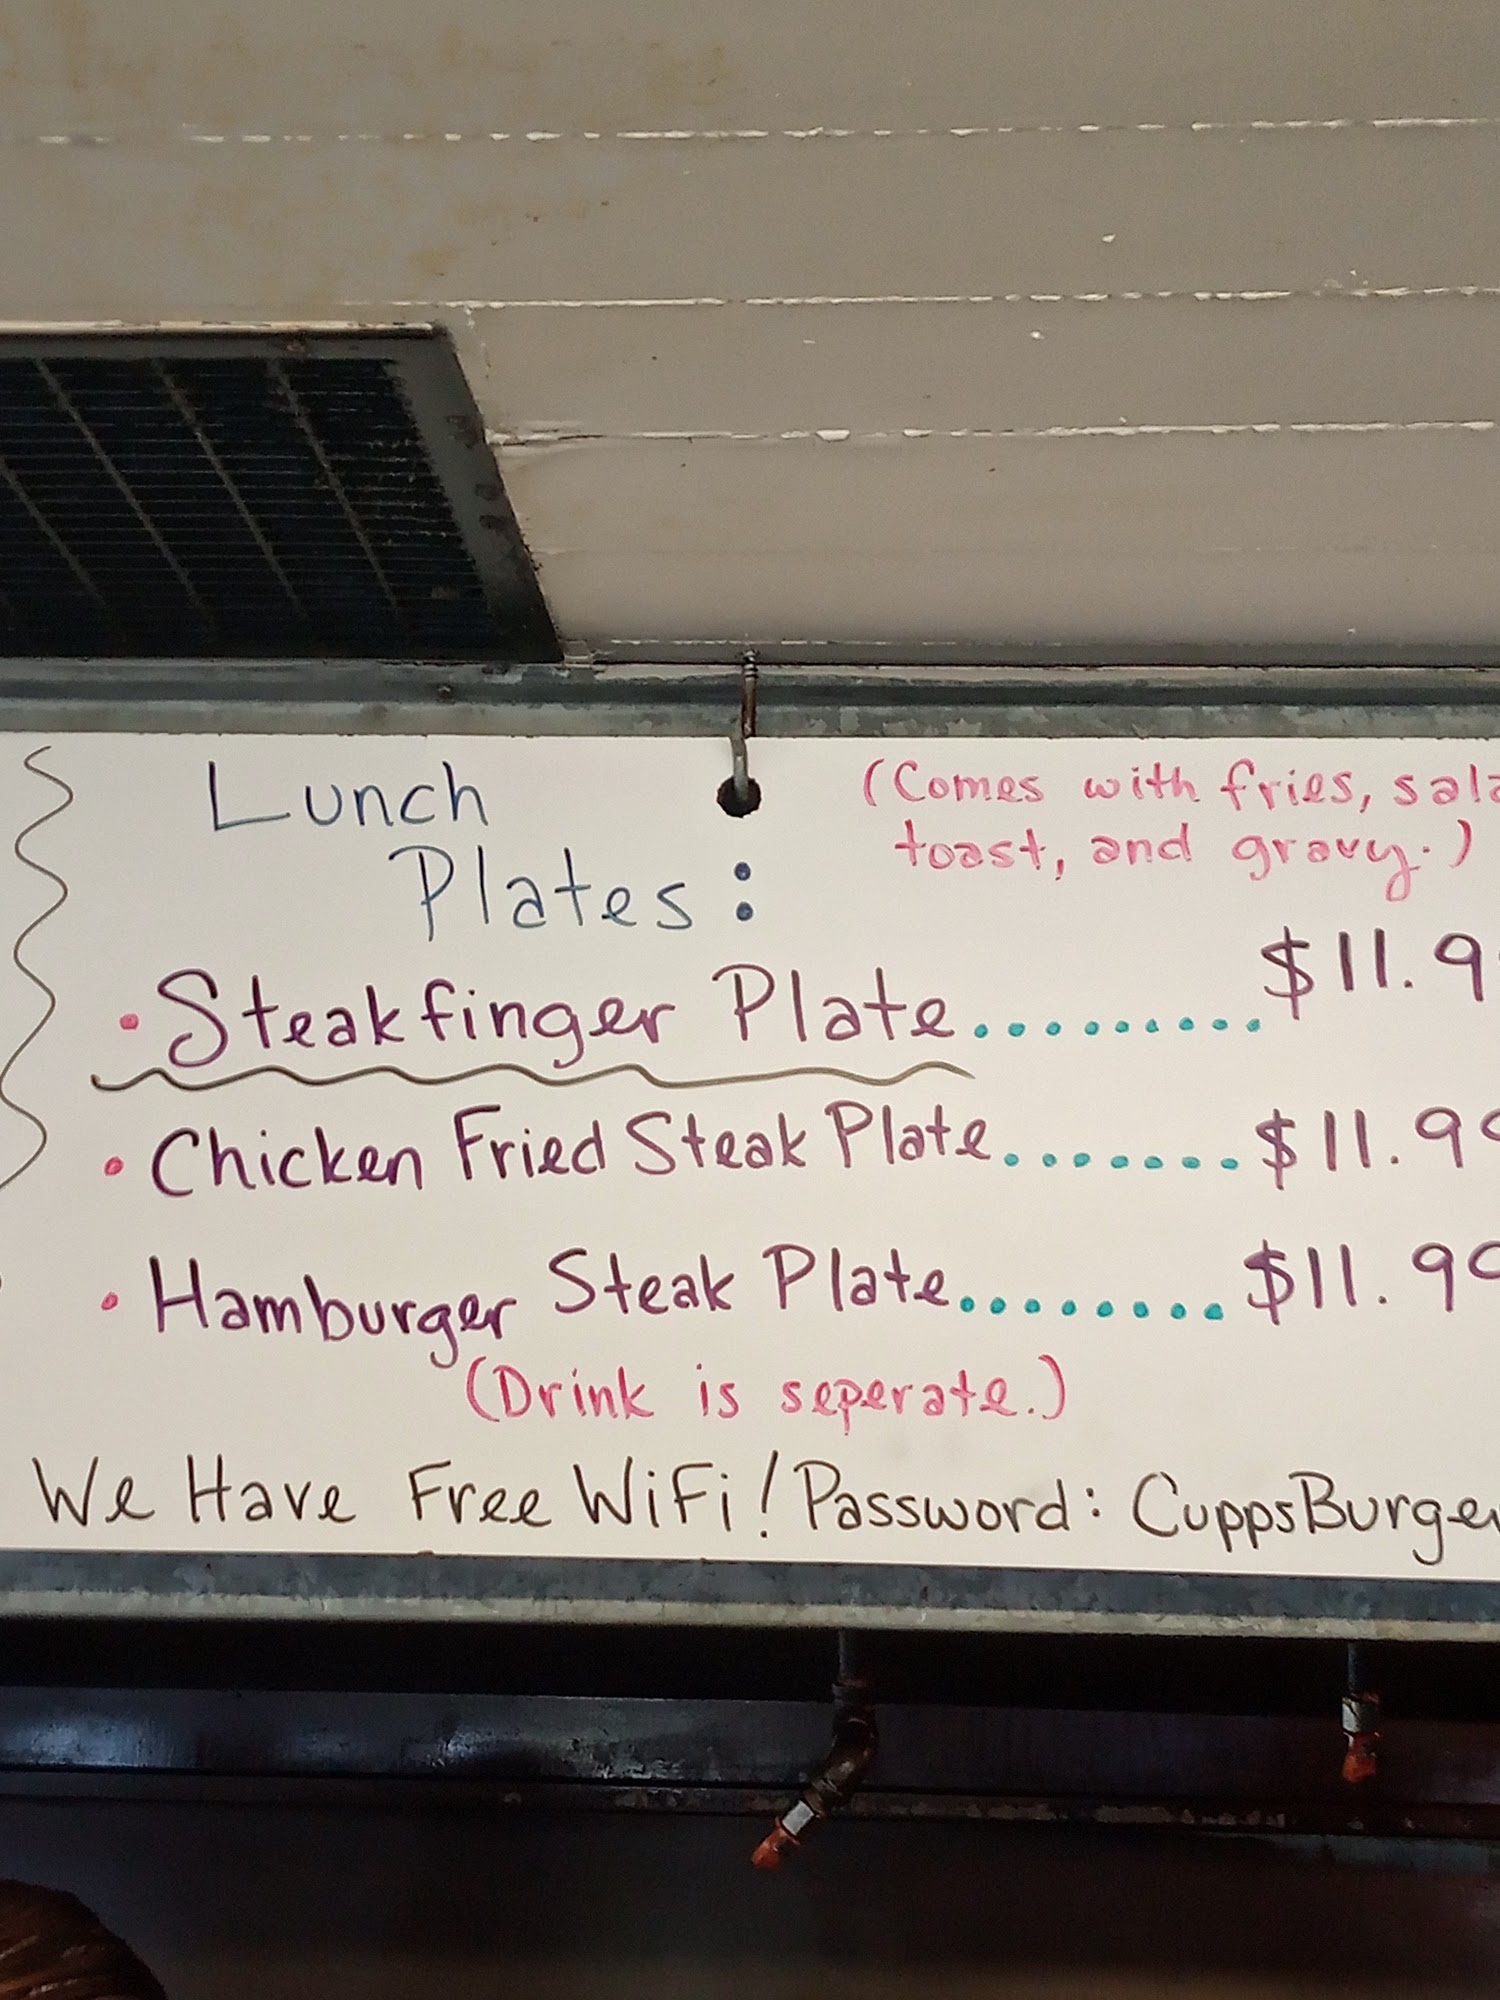 Lunch
Plates:
(Comes with fries, sala
toast, and gravy.)
• Steakfinger Plate......... $11.9
• Chicken Fried Steak Plate....... $11.99
• Hamburger Steak Plate........ $11.99
(Drink is seperate.)
We Have Free WiFi! Password: CuppsBurger